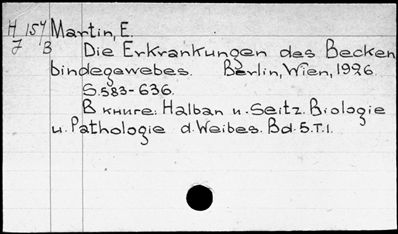 H 157 Martin, E.
J B Die Erkrankungen des Becken
bindegewebes. Berlin, Wien, 1926.
S. 583-636.
В книге. Halban u. Seitz. Biologie
u. Pathologie d. Weibes. Bd. 5. T. 1.